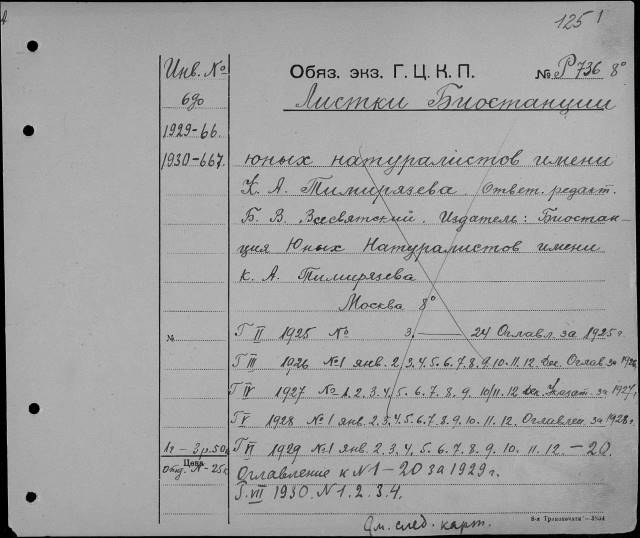 125 1
Инв. №
Обяз. экз. Г. Ц. К. П.
№ Р 736 8°
Листки Биостанции
1929-66.
1930-667.
юных натуралистов имени
К. А. Тимирязева. Ответ. редакт.
Б. В. Всесвятский. Издатель: Биостан-
ция Юных Натуралистов имени
К. А. Тимирязева
Москва 8°
№
Г II 1925 № 3. — 24 Оглавл за 1925 г.
Г III 1926 №1 янв. 2.3.4.5.6.7.8.9.10.11.12. Дек. Оглав за 1926
Г IV 1927 №1.2.3.4.5.6.7.8.9.10/11.12 Дек. Указат. за 1927 г.
Г V 1928 №1 янв. 2.3.4.5.6.7.8.9.10.11.12. Оглавлен. за 1928 г.
1 г - 3 р. 50 к
Г VI 1929 №1 янв. 2.3.4.5.6.7.8.9.10.11.12. — 20.
Цена
отд. № - 25 к
Оглавление к №1-20 за 1929 г.
Г. VII 1930. №1.2.3.4.
См. след. карт.